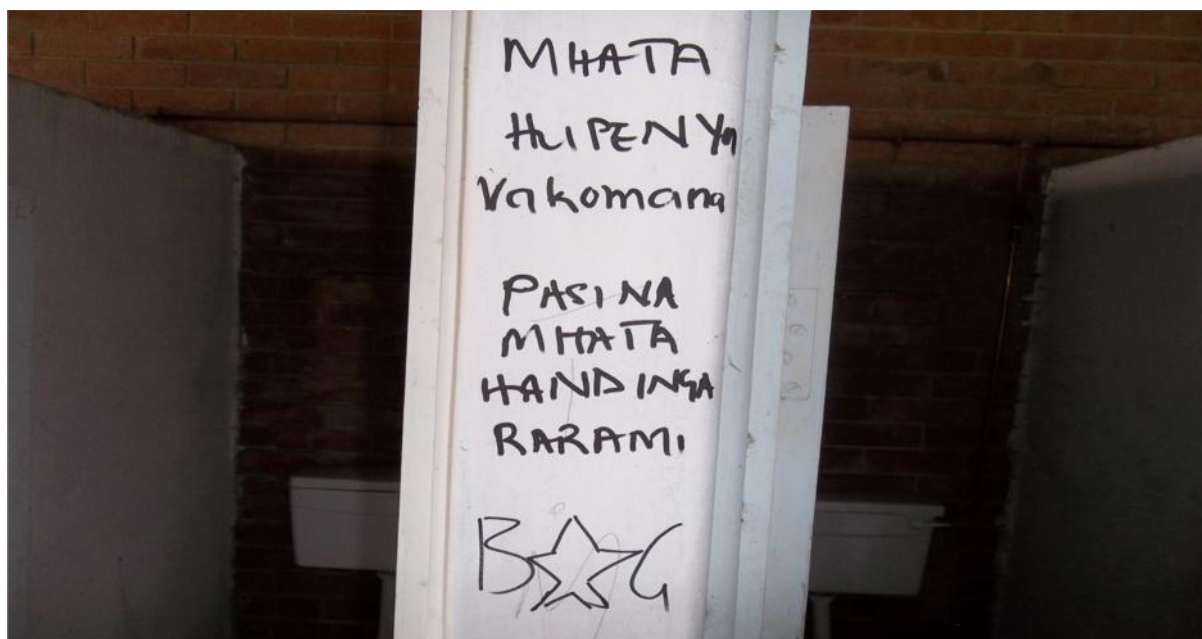 MHATA
HUPENYa
Vakomana
PASINA
MHATA
HANDINGA
RARAMI
B☆G